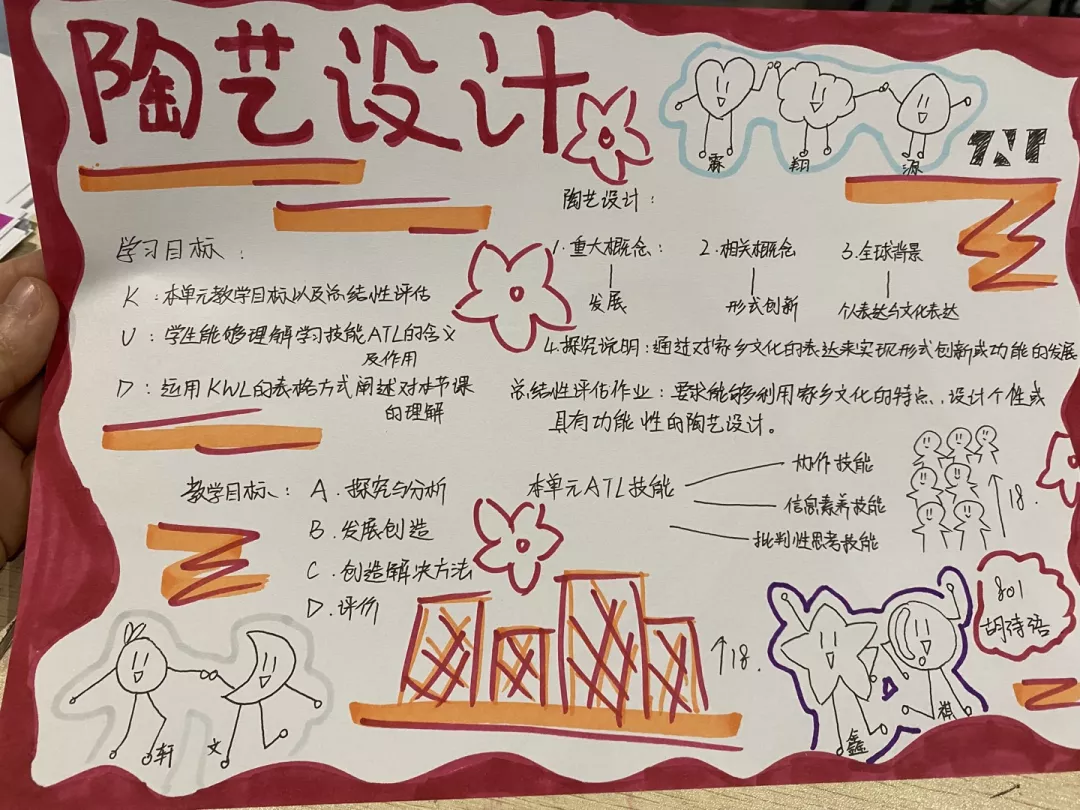 陶艺设计
霖 翔 源
陶艺设计：
1.重大概念 2.相关概念 3.全球背景
发展 形式创新 个人表达与文化表达
4.探究说明：通过对家乡文化的表达来实现形式创新或功能的发展
总结性评估作业：要求能够利用家乡文化的特点，设计个性或
具有功能性的陶艺设计。
学习目标：
K：本单元教学目标以及总结性评估
U：学生能够理解学习技能ATL的含义
及作用
D：运用KWL的表格方式阐述对本节课
的理解
教学目标：A.探究与分析
B.发展创造
C.创造解决方法
D.评价
本单元ATL技能
协作技能
信息素养技能
批判性思考技能
18.
↑18.
801
胡诗语
轩 文
鑫 祺